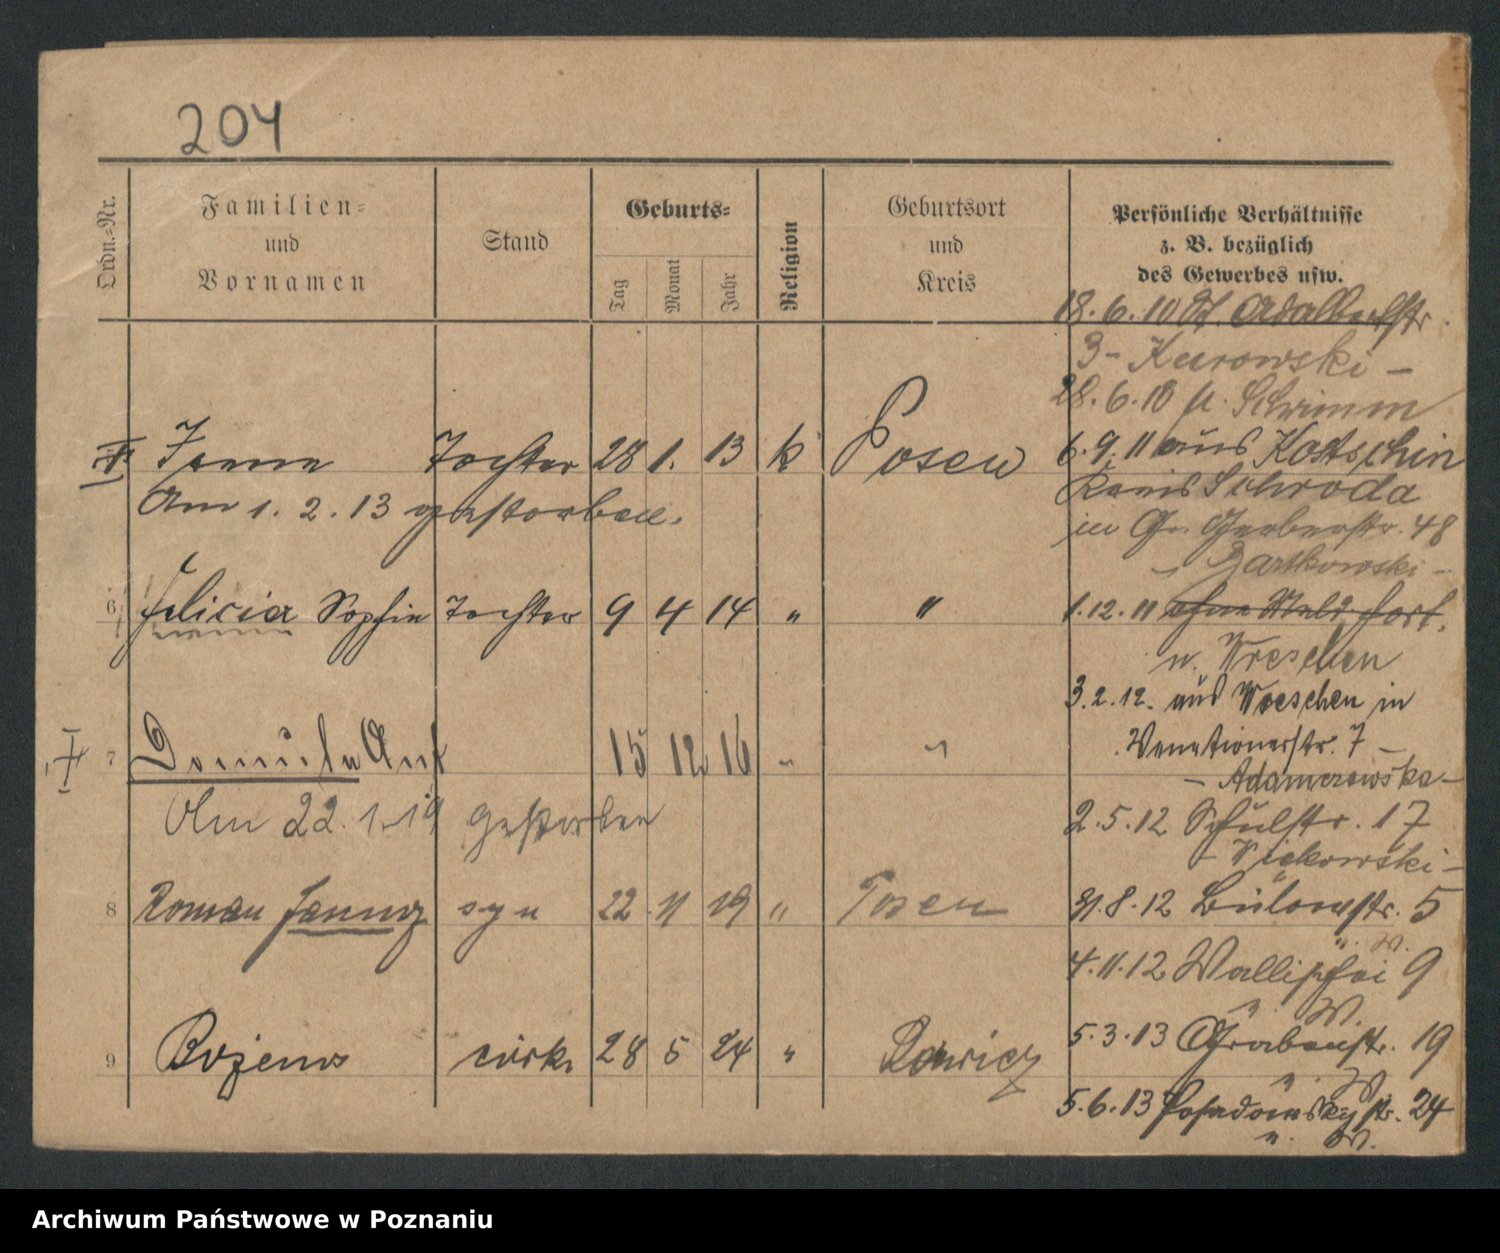 204
Ordn.-Nr.
Familien-
und
Vornamen
Stand
Geburts-
Tag
Monat
Jahr
Religion
Geburtsort
und
Kreis
Persönliche Verhältnisse
z. B. bezüglich
des Gewerbes usw.
Tochter 28 1. 13 k Posen
Am 1. 2. 13 gestorben.
6 Felicia Sophie Tochter 9 4 14 " "
7 15 12 16 " "
Am 22. 1. 19 gestorben
8 Roman syn 22 11 19 " Posen
9 Bożena córka 28 5 24 " Rawicz
18. 6. 10 St. Adalbertstr.
3 - Kurowski -
28. 6. 10 n. Schrimm
6. 9. 11 aus Kostschin
Kreis Schroda
in Gr. Gerberstr. 48
- Bartkowski -
1. 12. 11 ohne Meld. fort.
n. Wreschen
3. 2. 12. aus Wreschen in
Venetianerstr. 7 -
- Adamczewska -
2. 5. 12 Schulstr. 17
- Więkowski -
31. 8. 12 Bülowstr. 5
" W.
4. 11. 12 Wallischei 9
" W.
5. 3. 13 Grabenstr. 19
" W.
5. 6. 13 Posadowskystr. 24
" W.
Archiwum Państwowe w Poznaniu